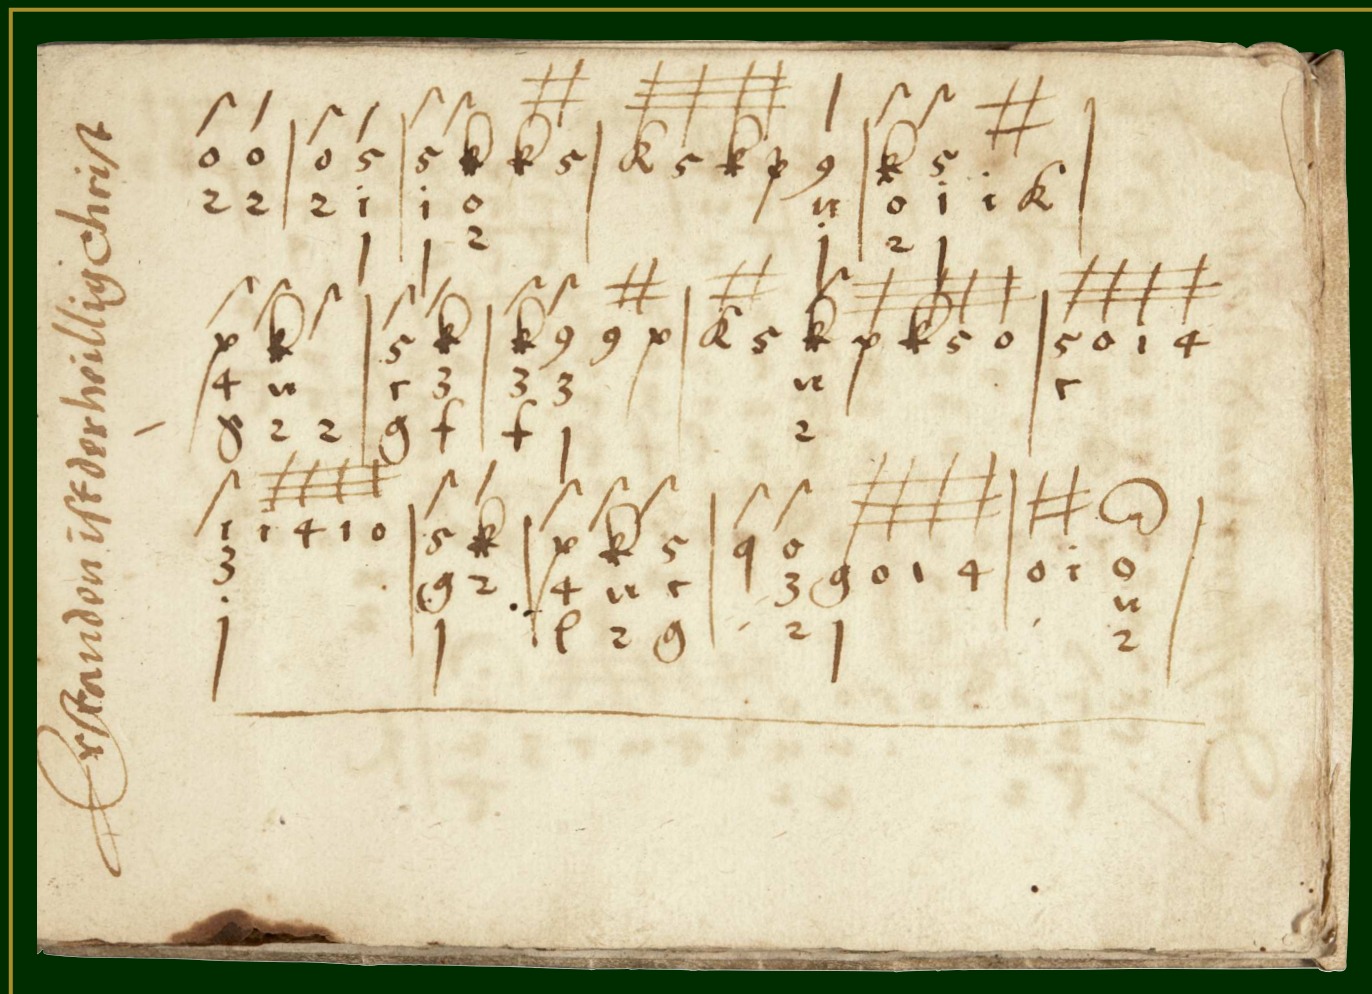 Erstanden ist der heillig Christ
o o o 5 5 k k 5 k 5 k p 9 k 5
2 2 2 i i o n o i i k
2 2
p k 5 k k 9 9 p k 5 k p k 5 o 5 o 1 4
4 n r 3 3 3 n r
2 2 g f f 2
1 i 4 1 o 5 k p k 5 q o
3 g 2 4 n r 3 g o 1 4 o i o
l 2 g 2 n
2